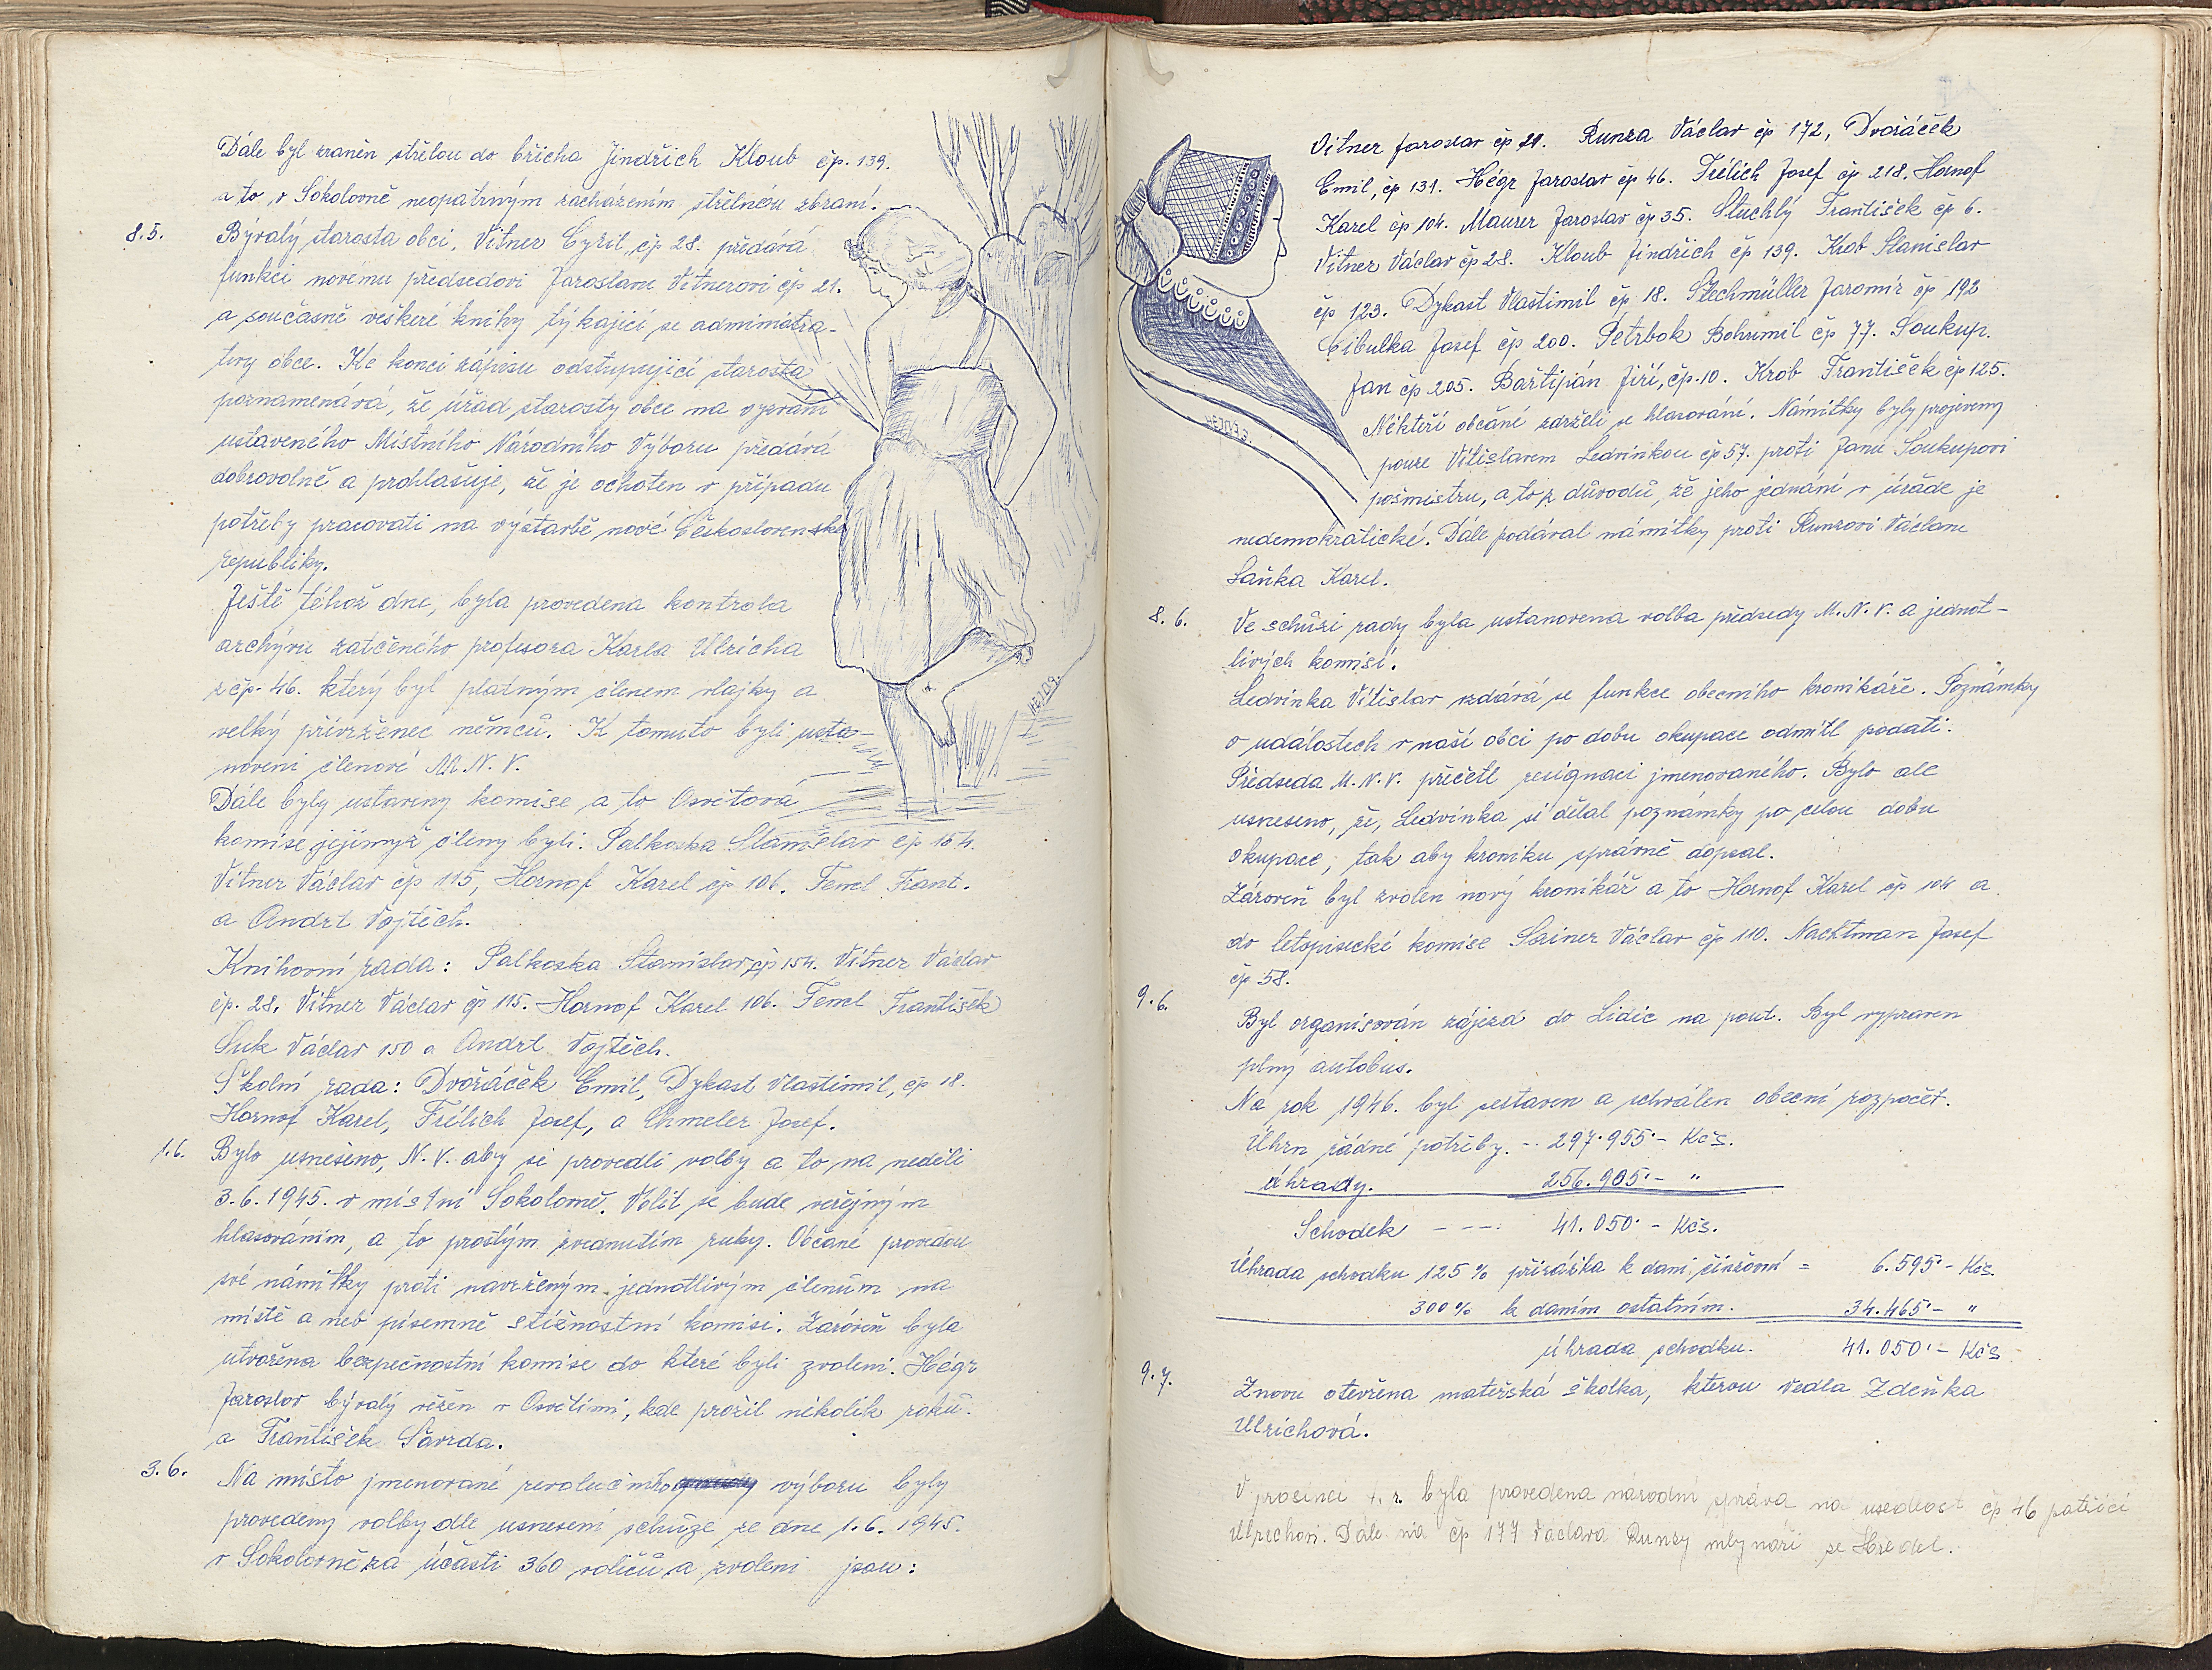 Dále byl zraněn střelou do břicha Jindřich Kloub čp. 139.
a to v Sokolovně neopatrným zacházením střelnou zbraní.
8.5. Bývalý starosta obci, Vitner Cyril, čp 28. předává
funkci novému předsedovi Jaroslavu Vitnerovi čp 21.
a současně veškeré knihy týkající se administra-
tivy obce. Ke konci zápisu odstupující starosta
poznamenává, že úřad starosty obce na vyzvání
ustaveného Místního Národního Výboru předává
dobrovolně a prohlašuje, že je ochoten v případu
potřeby pracovati na výstavbě nové Československé
republiky.
Ještě téhož dne, byla provedena kontrola
archývu zatčeného profesora Karla Ulricha
z čp. 46. který byl platným členem vlajky a
velký přivrženec němců. K tomuto byli usta-
noveni členové M.N.V.
Dále byly ustaveny komise a to Osvětová
komise jejímyž členy byli: Palkoska Stanislav čp 154.
Vitner Václav čp 115, Hornof Karel čp 106. Fencl Frant.
a Andrt Vojtěch.
Knihovní rada: Palkoska Stanislav čp 154. Vitner Václav
čp. 28. Vitner Václav čp 115. Hornof Karel 106. Fencl František
Suk Václav 150 a Andrt Vojtěch.
Školní rada: Dvořáček Emil, Dykast Vlastimil, čp 18.
Hornof Karel, Frélich Josef, a Chmeler Josef.
1.6. Bylo usnešeno, N.V. aby se provedli volby a to na neděli
3.6.1945. v místní Sokolovně. Volit se bude veřejným
hlasováním, a to prostým zvednutím ruky. Občané provedou
své námitky proti navrženým jednotlivým členům na
místě a neb písemně stížnostní komisi. Zároveň byla
utvořena bezpečnostní komise do které byli zvoleni. Hégr
Jaroslav bývalý vězen v Osvětimi, kde prožil několik roků.
a František Šavrda.
3.6. Na místo jmenované revolučního výboru byly
provedeny volby dle usnesení schůze ze dne 1.6.1945.
v Sokolovně za účasti 360 voličů a zvoleni jsou:
HEJDA.
Vitner Jaroslav čp 21. Runza Václav čp 172, Dvořáček
Emil, čp 131. Hégr Jaroslav čp 46. Frélich Josef čp 218. Hornof
Karel čp 104. Maurer Jaroslav čp 35. Stuchlý František čp 6.
Vitner Václav čp 28. Kloub Jindřich čp 139. Krob Stanislav
čp 123. Dykast Vlastimil čp 18. Štechmüller Jaromír čp 192
Cibulka Josef čp 200. Petrbok Bohumil čp 77. Soukup.
Jan čp 205. Bartipán Jiří, čp. 10. Krob František čp 125.
Někteří občané zdrželi se hlasování. Námitky byly projeveny
pouze Vítislavem Ledvinkou čp 57. proti Janu Soukupovi
pošmistru, a to z důvodů, že jeho jednání v úřáde je
nedemokratické. Dále podával námitky proti Runzovi Václavu
Saňka Karel.
8.6. Ve schůzi rady byla ustanovena volba předsedy M.N.V. a jednot-
livých komisí.
Ledvinka Vítislav vzdává se funkce obecního kronikáře. Poznámky
o událostech v naší obci po dobu okupace odmítl podati.
Předseda M.N.V. přečetl resignaci jmenovaného. Bylo ale
usneseno, že, Ledvinka si dělal poznámky po celou dobu
okupace, tak aby kroniku správně dopsal.
Zároveň byl zvolen nový kronikář a to Hornof Karel čp 104 a
do letopisecké komise Sainer Václav čp 110. Nachtman Josef
čp 58.
9.6. Byl organisován zájezd do Lidic na pout. Byl vypraven
plný autobus.
Na rok 1946. byl sestaven a schválen obecní rozpočet.
Úhrn řádné potřeby. - 297.955.- Kčs.
úhrady. 256.905.- "
Schodek - - - 41.050.- Kčs.
Úhrada schodku 125% přirážka k dani činžovní = 6.595.- Kčs.
300% k daním ostatním. 34.465.- "
úhrada schodku. 41.050.- Kčs
9.7. Znovu otevřena mateřská školka, kterou vedla Zdeňka
Ulrichová.
V prosinci t.r. byla provedena národní správa na usedlost čp 46 patřící
Ulrichovi. Dále na čp 177 Václava Runzy mlynáři ze Hředel.